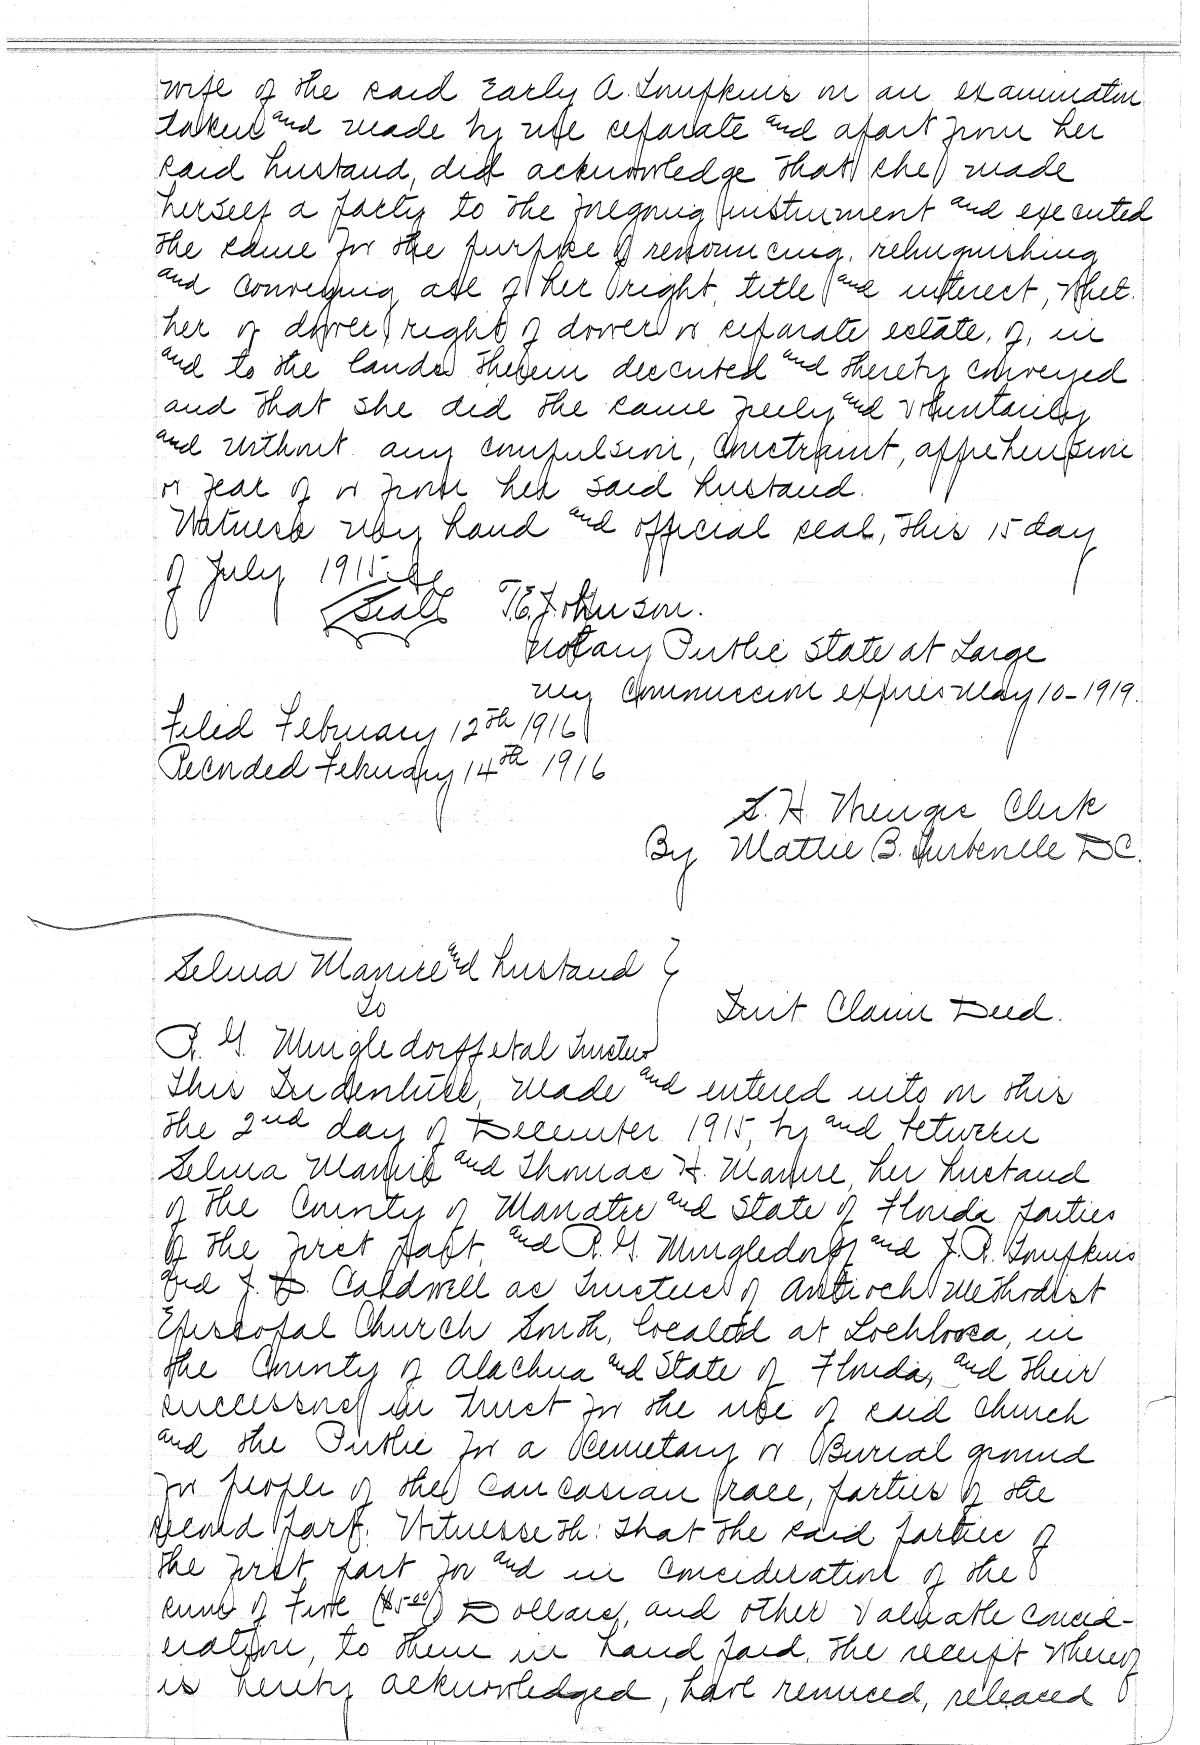 wife of the said Early A. Tompkins on an examination
taken and made by me separate and apart from her
said husband, did acknowledge that she made
herself a party to the foregoing instrument and executed
the same for the purpose of renouncing, relinquishing
and conveying all of her right, title and interest, whet
her of dower, right of dower or separate estate, of, in
and to the lands therein described and thereby conveyed
and that she did the same freely and voluntarily
and without any compulsion, constraint, apprehension
or fear of or from her said husband.
Witness my hand and official seal, this 15 day
of July 1915
Seal T.E. Johnson.
Notary Public State at Large
my Commission expires May 10-1919.
Filed February 12th 1916
Recorded February 14th 1916
S. H. Wienges Clerk
By Mattie B. DC.
Selma Manire and husband
To
Quit Claim Deed.
R. G. Mingledorff et al Trustees
This Indenture, made and entered into on this
the 2nd day of December 1915, by and between
Selma Manire and Thomas H. Manire, her husband
of the County of Manatee and State of Florida parties
of the first part, and R. G. Mingledorff and J. R. Tompkins
and J. D. Caldwell as Trustees of Antioch Methodist
Episcopal Church South, located at Lochloosa, in
the County of Alachua and State of Florida, and their
successors in trust for the use of said Church
and the Public for a Cemetary or Burial ground
for people of the Caucasian race, parties of the
second part. Witnesseth: that the said parties of
the first part for and in consideration of the
sum of Five ($5.00) Dollars, and other valuable consid-
eration, to them in hand paid, the receipt whereof
is hereby acknowledged, have remised, released